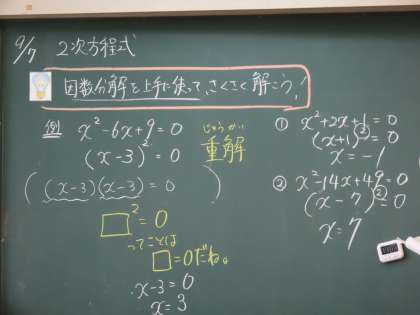 9/7 2次方程式
因数分解を上手に使って、さくさく解こう!
例 x²-6x+9=0
(x-3)²=0
((x-3)(x-3)=0)
じゅうかい
重解
□²=0
ってことは
□=0だね。
x-3=0
x=3
① x²+2x+1=0
(x+1)²=0
x=-1
② x²-14x+49=0
(x-7)²=0
x=7